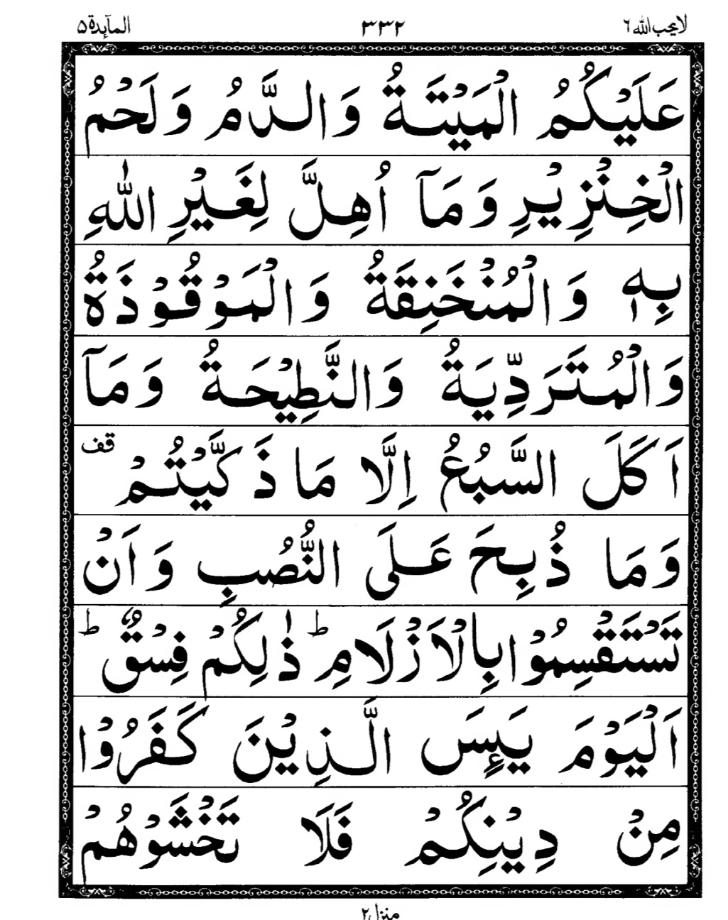 المآىدة ۵ ۳۳۲ لا یحب الله ۶
عَلَیْكُمُ الْمَیْتَةُ وَالدَّمُ وَلَحْمُ
الْخِنْزِیْرِ وَمَاۤ اُهِلَّ لِغَیْرِ اللّٰهِ
بِهٖ وَالْمُنْخَنِقَةُ وَالْمَوْقُوْذَةُ
وَالْمُتَرَدِّیَةُ وَالنَّطِیْحَةُ وَمَاۤ
اَكَلَ السَّبُعُ اِلَّا مَا ذَكَّیْتُمْ قف
وَمَا ذُبِحَ عَلَی النُّصُبِ وَاَنْ
تَسْتَقْسِمُوْا بِالْاَزْلَامِ ؕ ذٰلِكُمْ فِسْقٌ ؕ
اَلْیَوْمَ یَىِٕسَ الَّذِیْنَ كَفَرُوْا
مِنْ دِیْنِكُمْ فَلَا تَخْشَوْهُمْ
منزل ۲